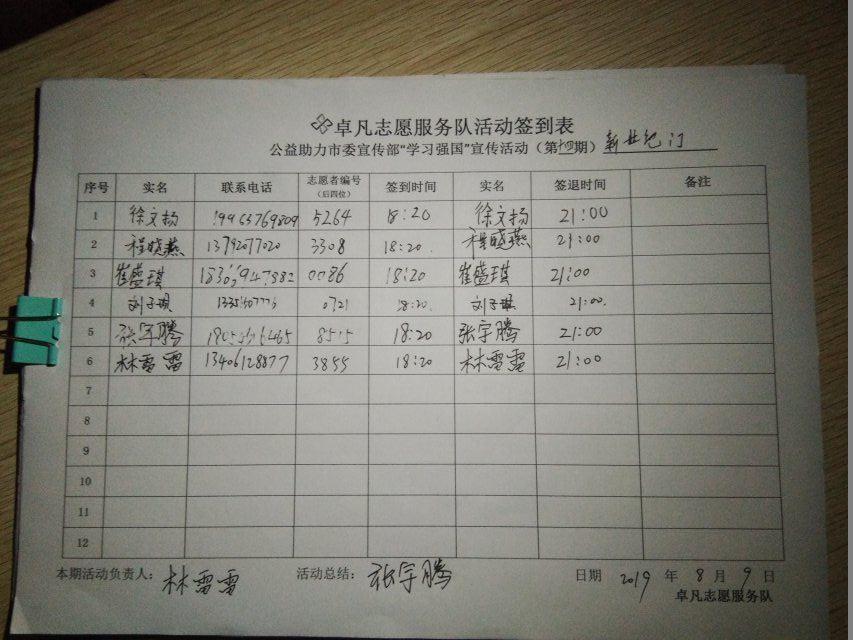 卓凡志愿服务队活动签到表
公益助力市委宣传部"学习强国"宣传活动（第十四期）新世纪门
序号 实名 联系电话 志愿者编号（后四位） 签到时间 实名 签退时间 备注
1 徐文扬 19963769809 5264 18:20 徐文扬 21:00
2 程晓燕 13792077020 3308 18:20 程晓燕 21:00
3 崔盛琪 0086 18:20 崔盛琪 21:00
4 刘子琪 0721 18:20 刘子琪 21:00
5 张宇腾 8515 18:20 张宇腾 21:00
6 林雷雷 13406128877 3855 18:20 林雷雷 21:00
7
8
9
10
11
12
本期活动负责人：林雷雷 活动总结：张宇腾 日期 2019 年 8 月 9 日
卓凡志愿服务队